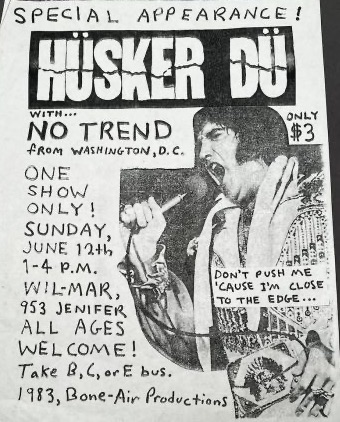 SPECIAL APPEARANCE!
HÜSKER DÜ
WITH...
NO TREND
FROM WASHINGTON, D.C.
ONLY
$3
ONE
SHOW
ONLY!
SUNDAY,
JUNE 12th
1-4 P.M.
WIL-MAR,
953 JENIFER
ALL AGES
WELCOME!
Take B, C, or E bus.
1983, Bone-Air Productions
DON'T PUSH ME
'CAUSE I'M CLOSE
TO THE EDGE...